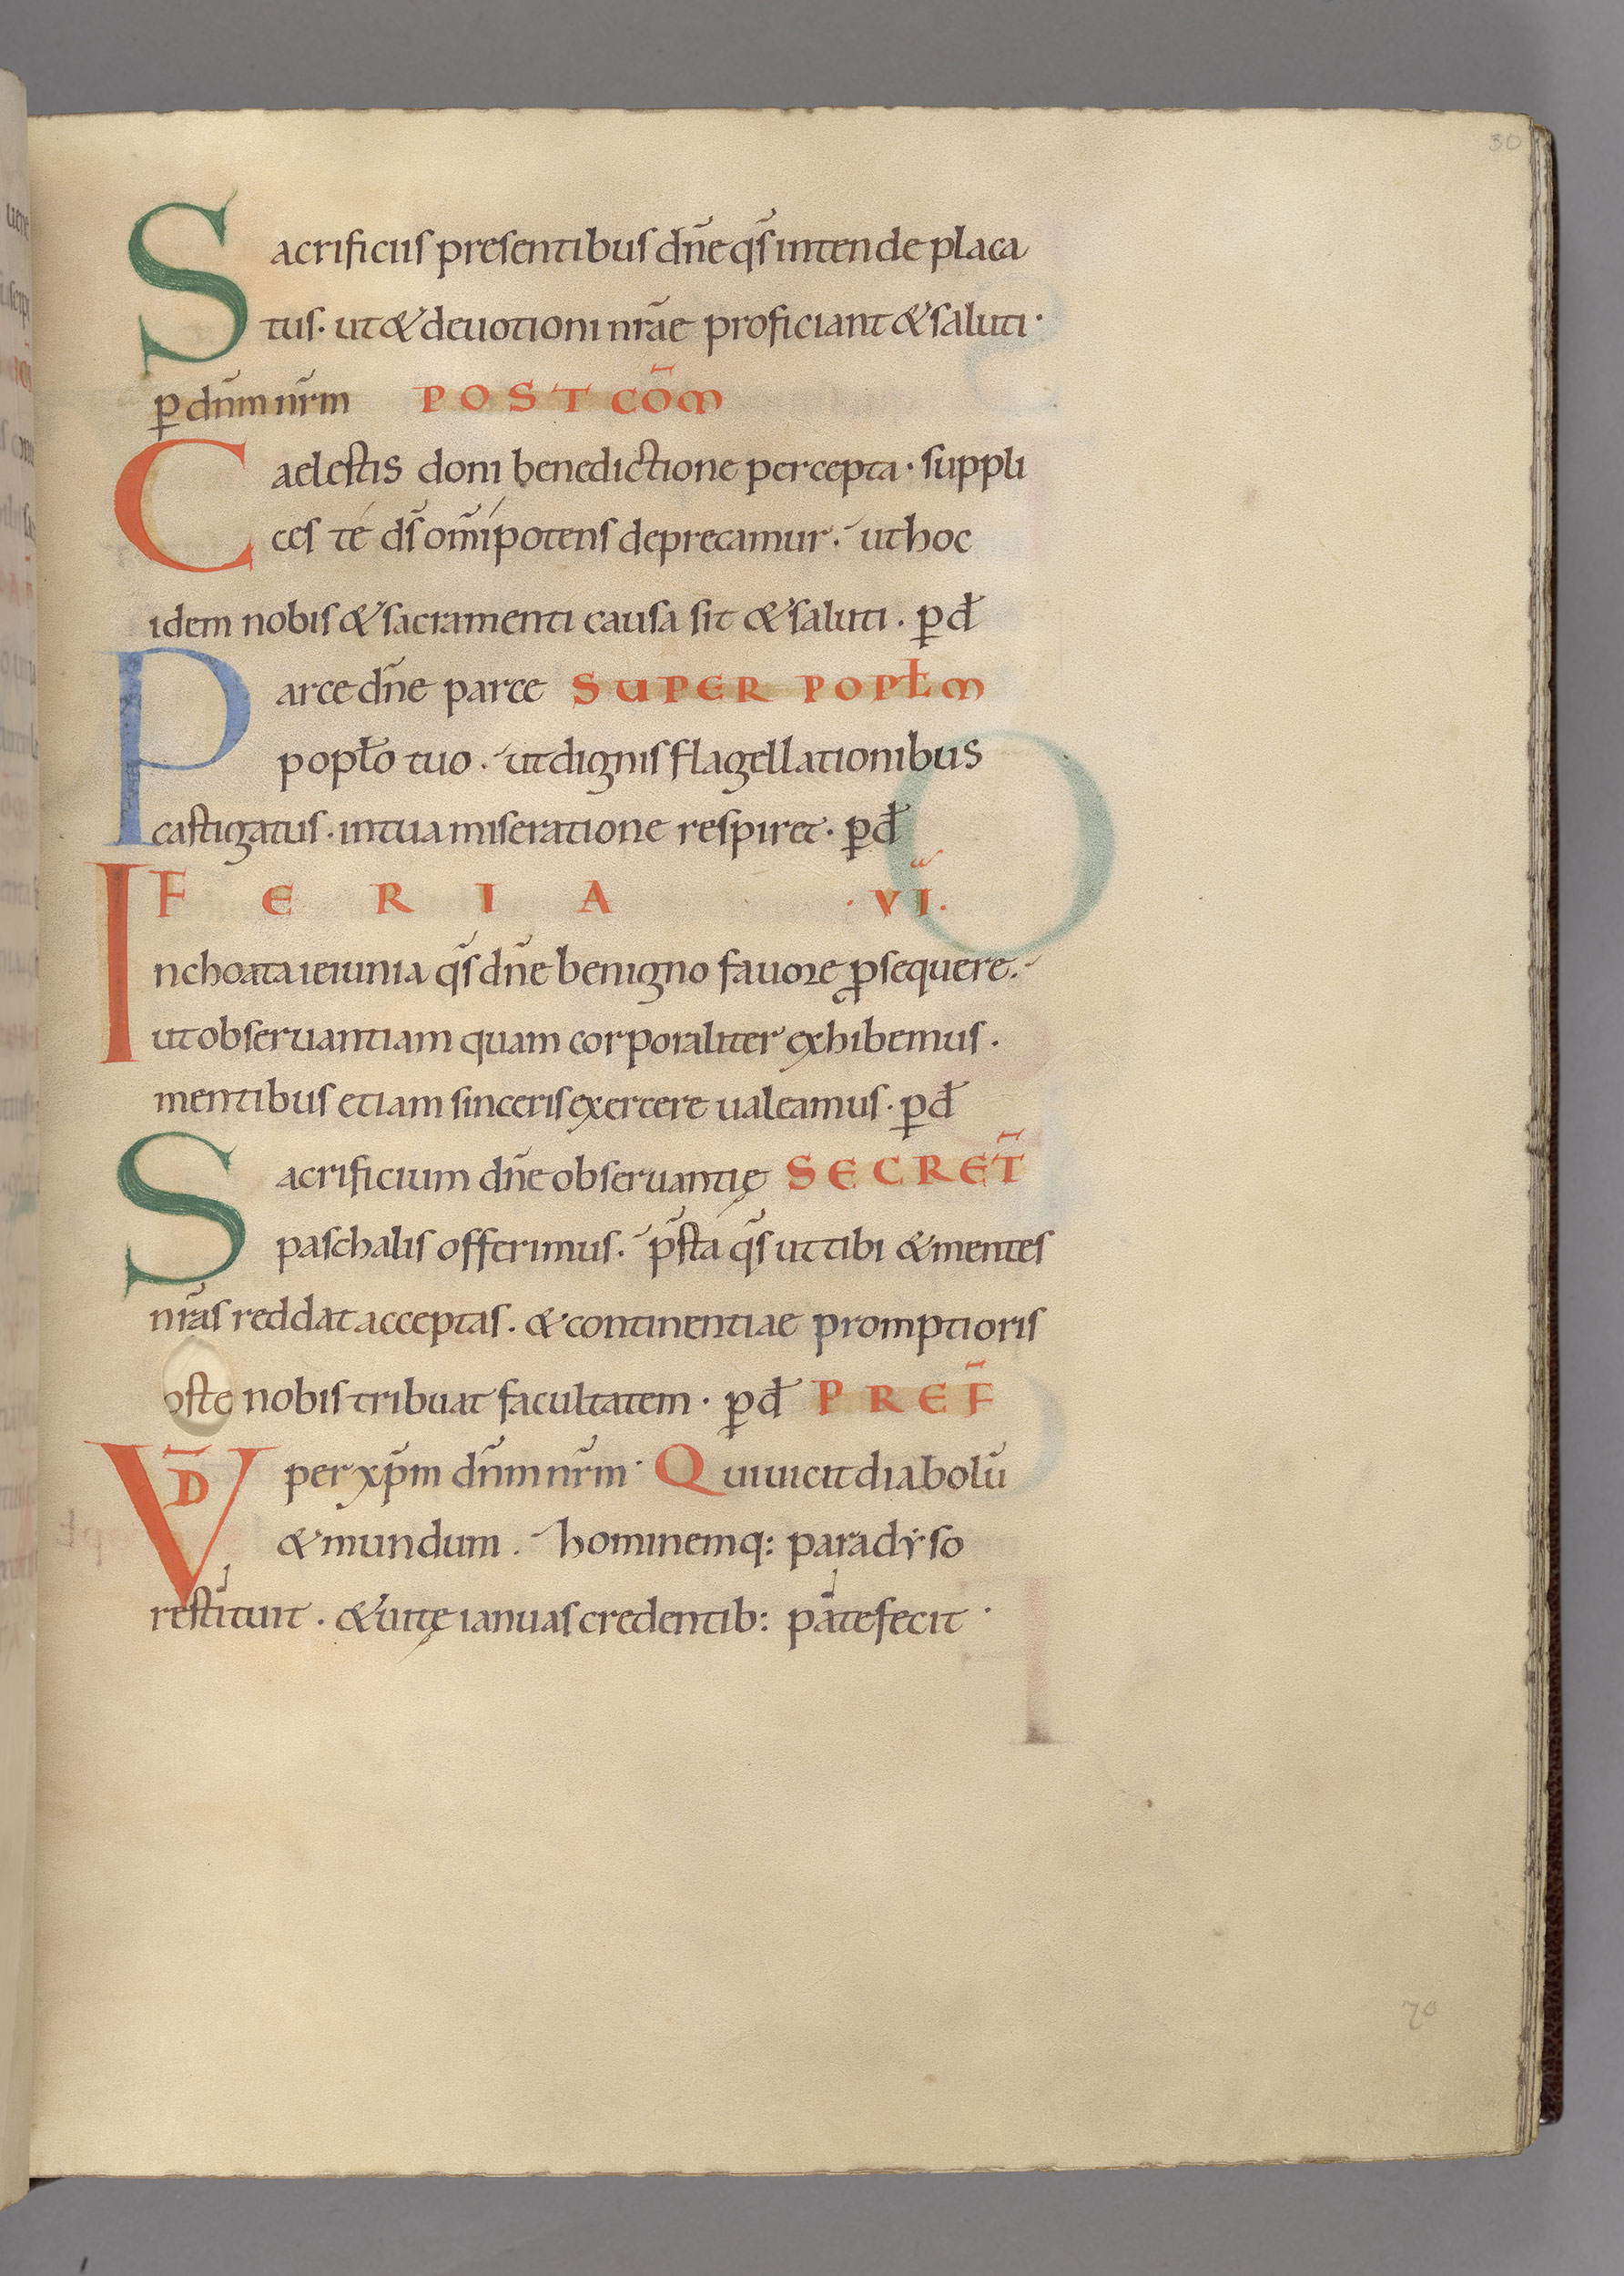 30
Sacrificiis presentibus dñe q̃s intende placa
tus · ut & deuotioni nr̃ae proficiant & saluti ·
ꝑ dñm nr̃m POST COM̃
Caelestis doni benedictione percepta · suppli
ces té dˉs om̃ípotens deprecamur · ut hoc
idem nobis & sacramenti causa sit & saluti · ꝑ đ
Parce dñe parce SUPER POPL̃M
popl̃o tuo · ut dignis flagellationibus
castigatus · in tua miseratione respiret · ꝑ đ
FERIA · VI ·
Inchoata ieiunia q̃s dñe benigno fauore ꝓsequere ·
ut obseruantiam quam corporaliter exhibemus ·
mentibus etiam sinceris exercere ualeamus · ꝑ đ
Sacrificium dñe obseruantię SECRET̃
paschalis offerimus · p̃sta q̃s ut tibi & mentes
nr̃as reddat acceptas · & continentiae promptioris
oste nobis tribuat facultatem · ꝑ đ PREF̃
VD̃ per xp̃m dñm nr̃m · Qui uicit diabolũ
& mundum · hominemq: paradẏso
restituit · & uitę ianuas credentib: patefecit ·
70